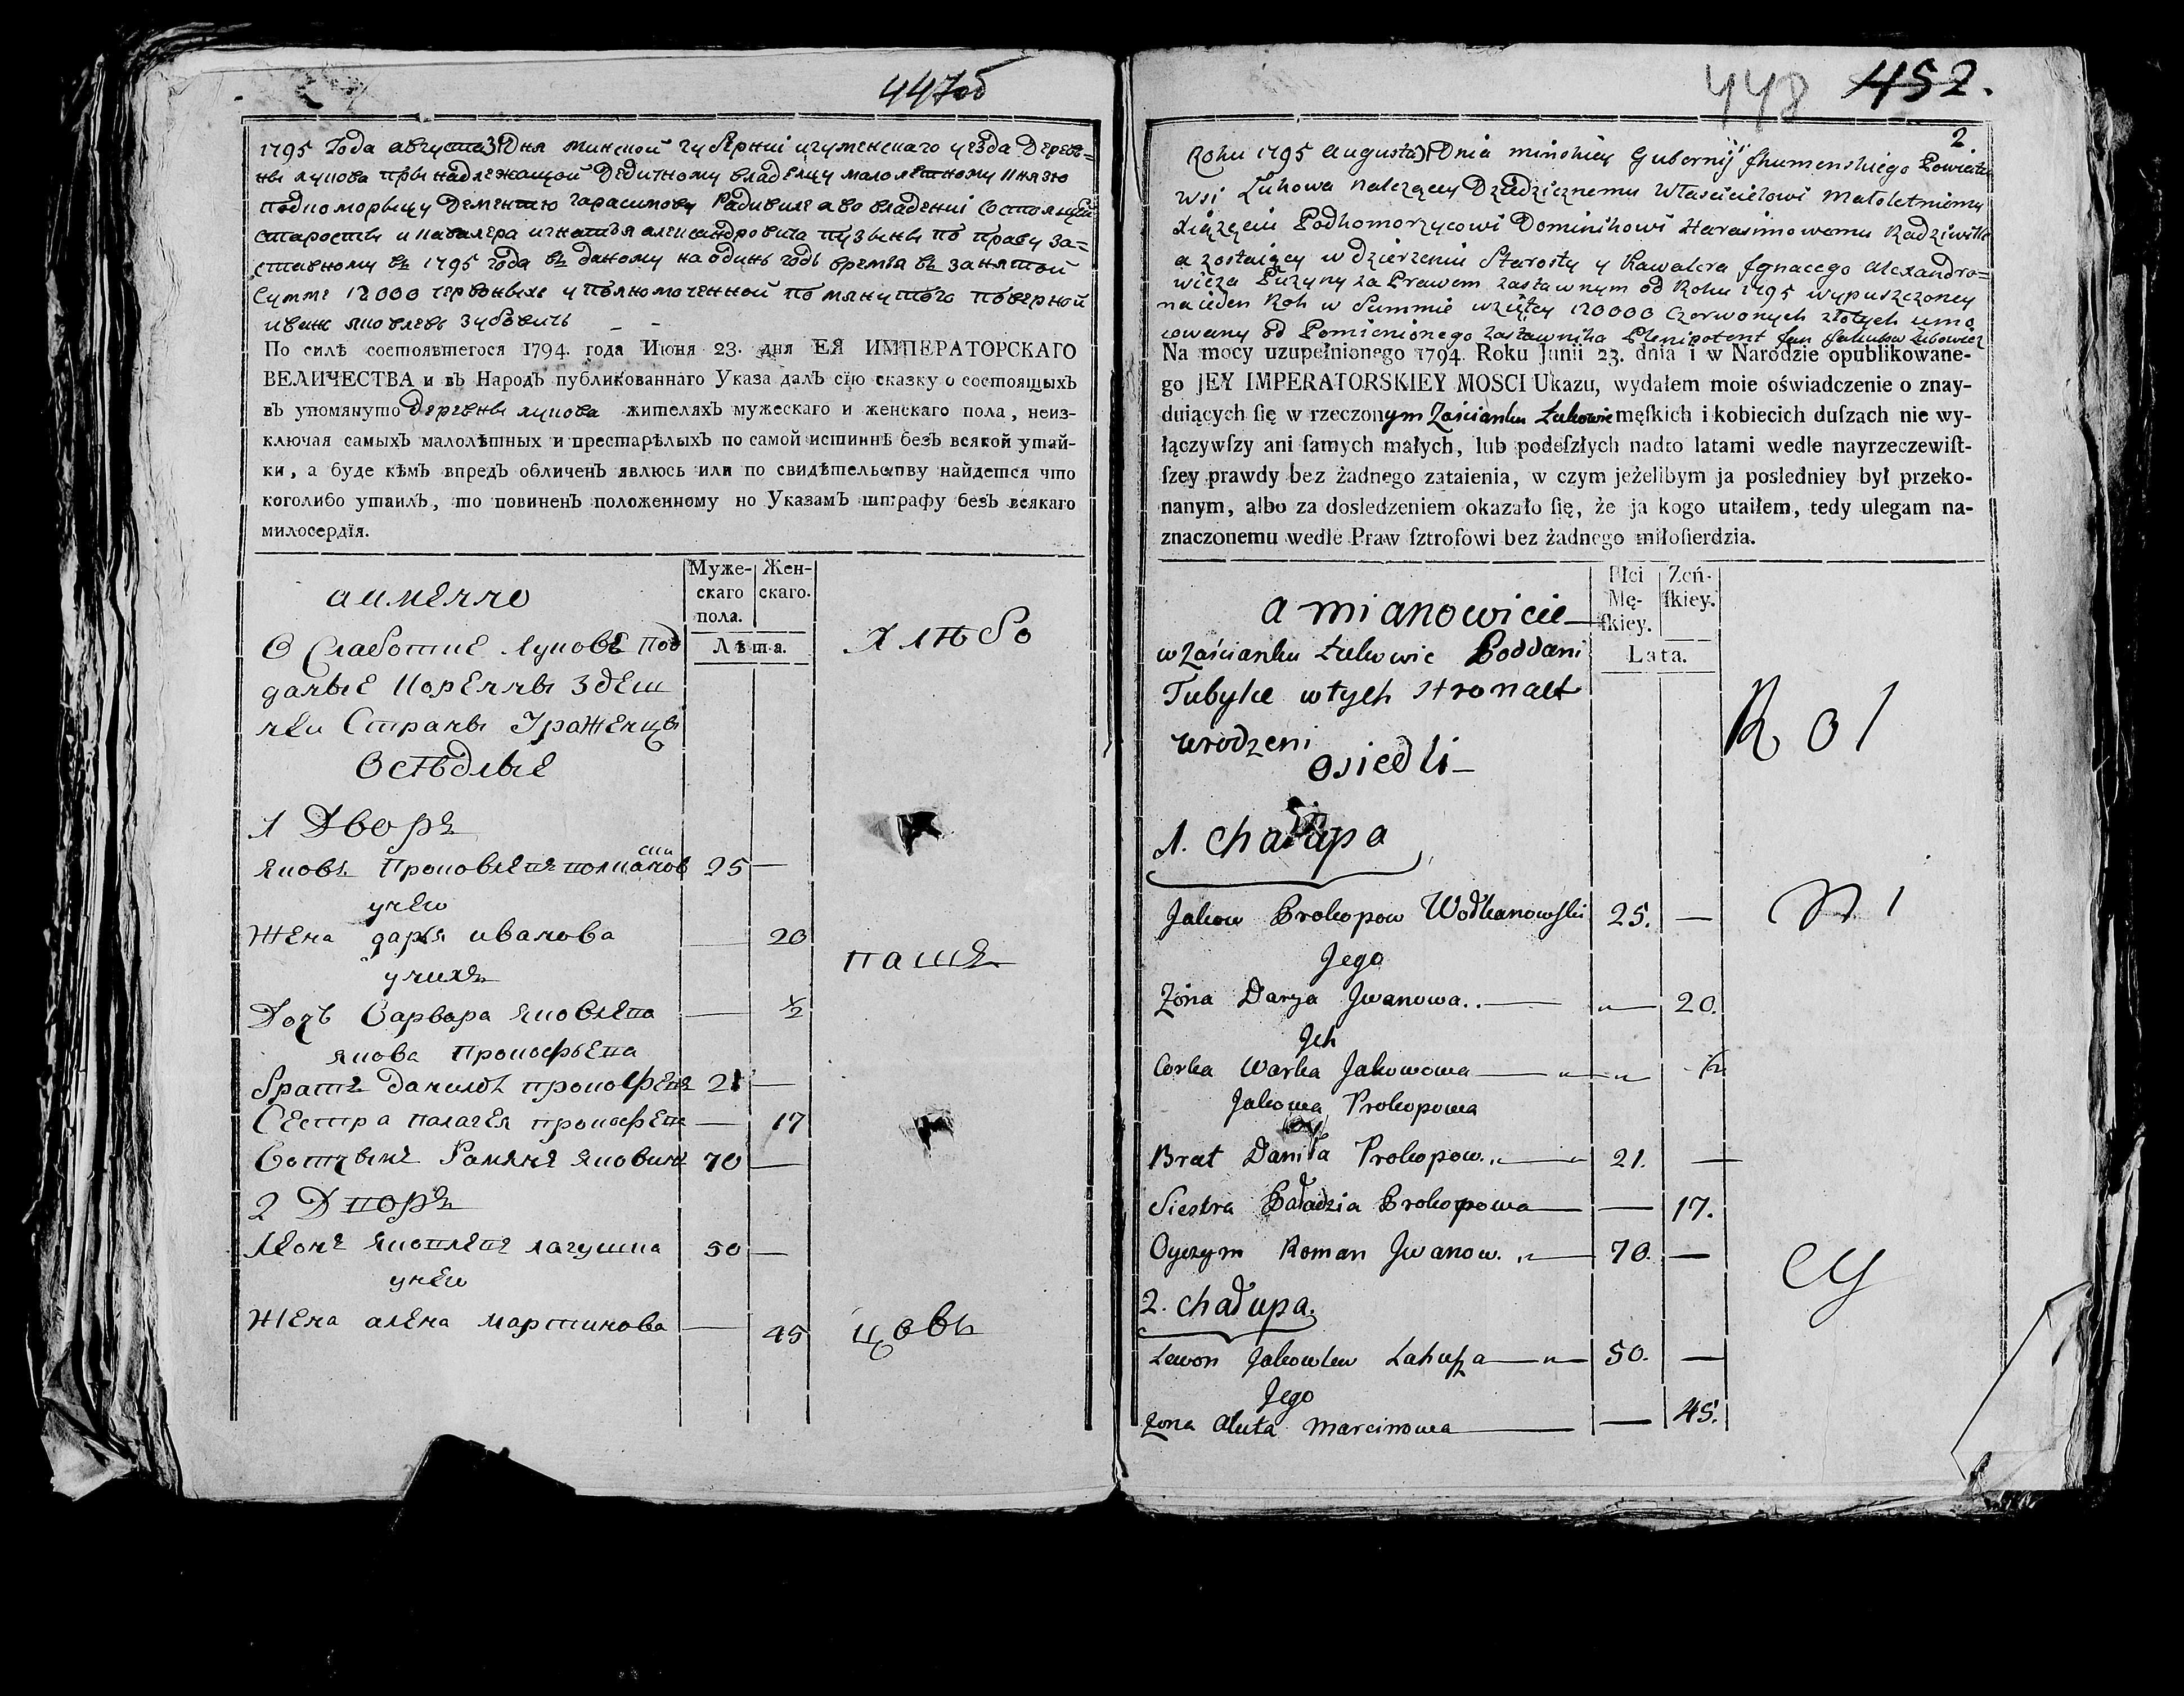 447об
1795 Года августа 31 Дня минской губерниі игуменскаго уезда Дерев=
ны лукова принадлежащой Дедичному владелцу малолетному князю
подкоморыцу Дементию Гарасимову Радивиле а во владениі состоящей
старосты и кавалера игнатья александровича пузыны по праву за=
ставному въ 1795 года въ даному на одинъ годъ время въ занятой
Сумме 12000 червоныхъ уполномоченной помянутого поверной
иванъ яковлевъ зубовичъ
По силѣ состоявшегося 1794. года Июня 23. дня ЕЯ ИМПЕРАТОРСКАГО
ВЕЛИЧЕСТВА и въ Народъ публикованнаго Указа далъ сїю сказку о состоящыхъ
въ упомянуто Деревни лукова жителяхъ мужескаго и женскаго пола, неиз-
ключая самыхъ малолѣтныхъ и престарѣлыхъ по самой истиннѣ безъ всякой утай-
ки, а буде кѣмъ впредъ обличенъ явлюсь или по свидѣтельству найдется что
коголибо утаилъ, то повиненъ положенному по Указамъ штрафу безъ всякаго
милосердїя.
Муже-
скаго
пола.
Жен-
скаго.
Лѣта.
а имѣнно
В Слаботке Лукове под
даные Корѣнны здеш
неи Страны Урожѣнцы
Осѣдлые
хлѣбо
1 Дворъ
Яковъ Прокоѳъевъ 25 —
унѣю
Жена дарья иванова — 20
унихъ
пашѣ
Дочь Варвара яковлева — ½
якова Прокофьева
братъ данило прокофевъ 21 —
Сестра палагея прокофева — 17
Вотчымъ Раманъ 70 —
2 Дворъ
Леонъ яковлевъ 50 —
унѣю
Жена алена мартинова — 45
цовъ
448 452.
2
Roku 1795 Augusta 31 Dnia minskiey Gubernij Jhumenskiego Powiatu
wsi Łukowa należącey Dziedzicznemu Właścicielowi Małoletniemu
Xiążęciu Podkomorzycowi Dominikowi Harasimowemu Radziwiłło
a zostaiącey w dzierżeniu Starosty y Kawalera Jgnacego Alexandro=
wicza Puzyny za Prawem zastawnym od Roku 1795 wypuszczoney
na ieden Rok w Summie wziętey 120000 Czerwonych złotych umo
cowany od Pomienionego zastawnika Plenipotent Jan Jakubow Zubowicz
Na mocy uzupełnionego 1794. Roku Junii 23. dnia i w Narodzie opublikowane-
go JEY IMPERATORSKIEY MOSCI Ukazu, wydałem moie oświadczenie o znay-
duiących ſię w rzeczonym Zaścianku Łukowie męſkich i kobiecich duſzach nie wy-
łączywſzy ani ſamych małych, lub podeſzłych nadto latami wedle nayrzeczewiſt-
ſzey prawdy bez żadnego zataienia, w czym jeżelibym ja posledniey był przeko-
nanym, albo za dosledzeniem okazało ſię, że ja kogo utaiłem, tedy ulegam na-
znaczonemu wedle Praw ſztrofowi bez żadnego miłoſierdzia.
Płci
Mę-
ſkiey.
Zeń-
ſkiey.
Lata.
a mianowicie
w Zaścianku Łukowie Poddani
Tubylce w tych stronach
urodzeni
osiedli
Rol
1. chałupa
Jakow Prokopow Wodkanowski 25. —
ni
Jego
Żona Darya Jwanowa — 20.
Jch
Corka Warka Jakowowa — ½
Jakowa Prokopowa
Brat Daniła Prokopow 21. —
Siestra Paładzia Prokopowa — 17.
Oyczym Roman Jwanow. 70. —
cy
2. chałupa.
Lewon Jakowlew 50. —
Jego
Zona Aluta Marcinowa — 45.